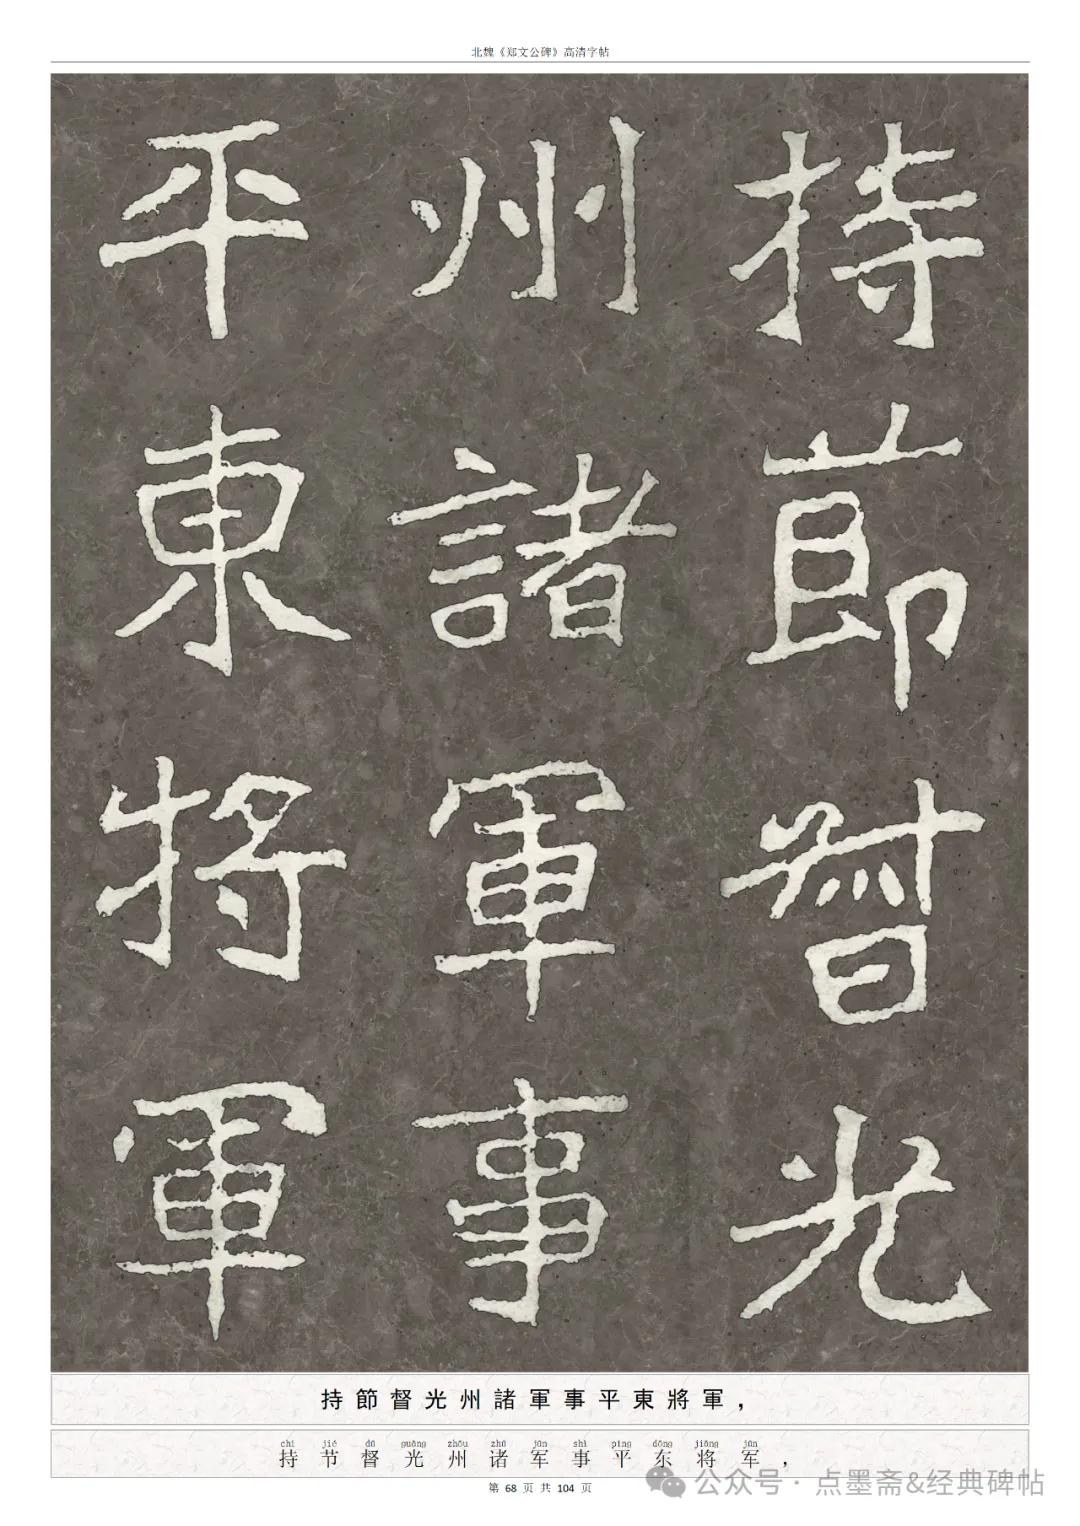 北魏《郑文公碑》高清字帖
持節督光
州諸軍事
平東將軍
持節督光州諸軍事平東將軍，
chí jié dū guāng zhōu zhū jūn shì píng dōng jiāng jūn
持节督光州诸军事平东将军，
第 68 页 共 104 页
公众号 · 点墨斋&经典碑帖